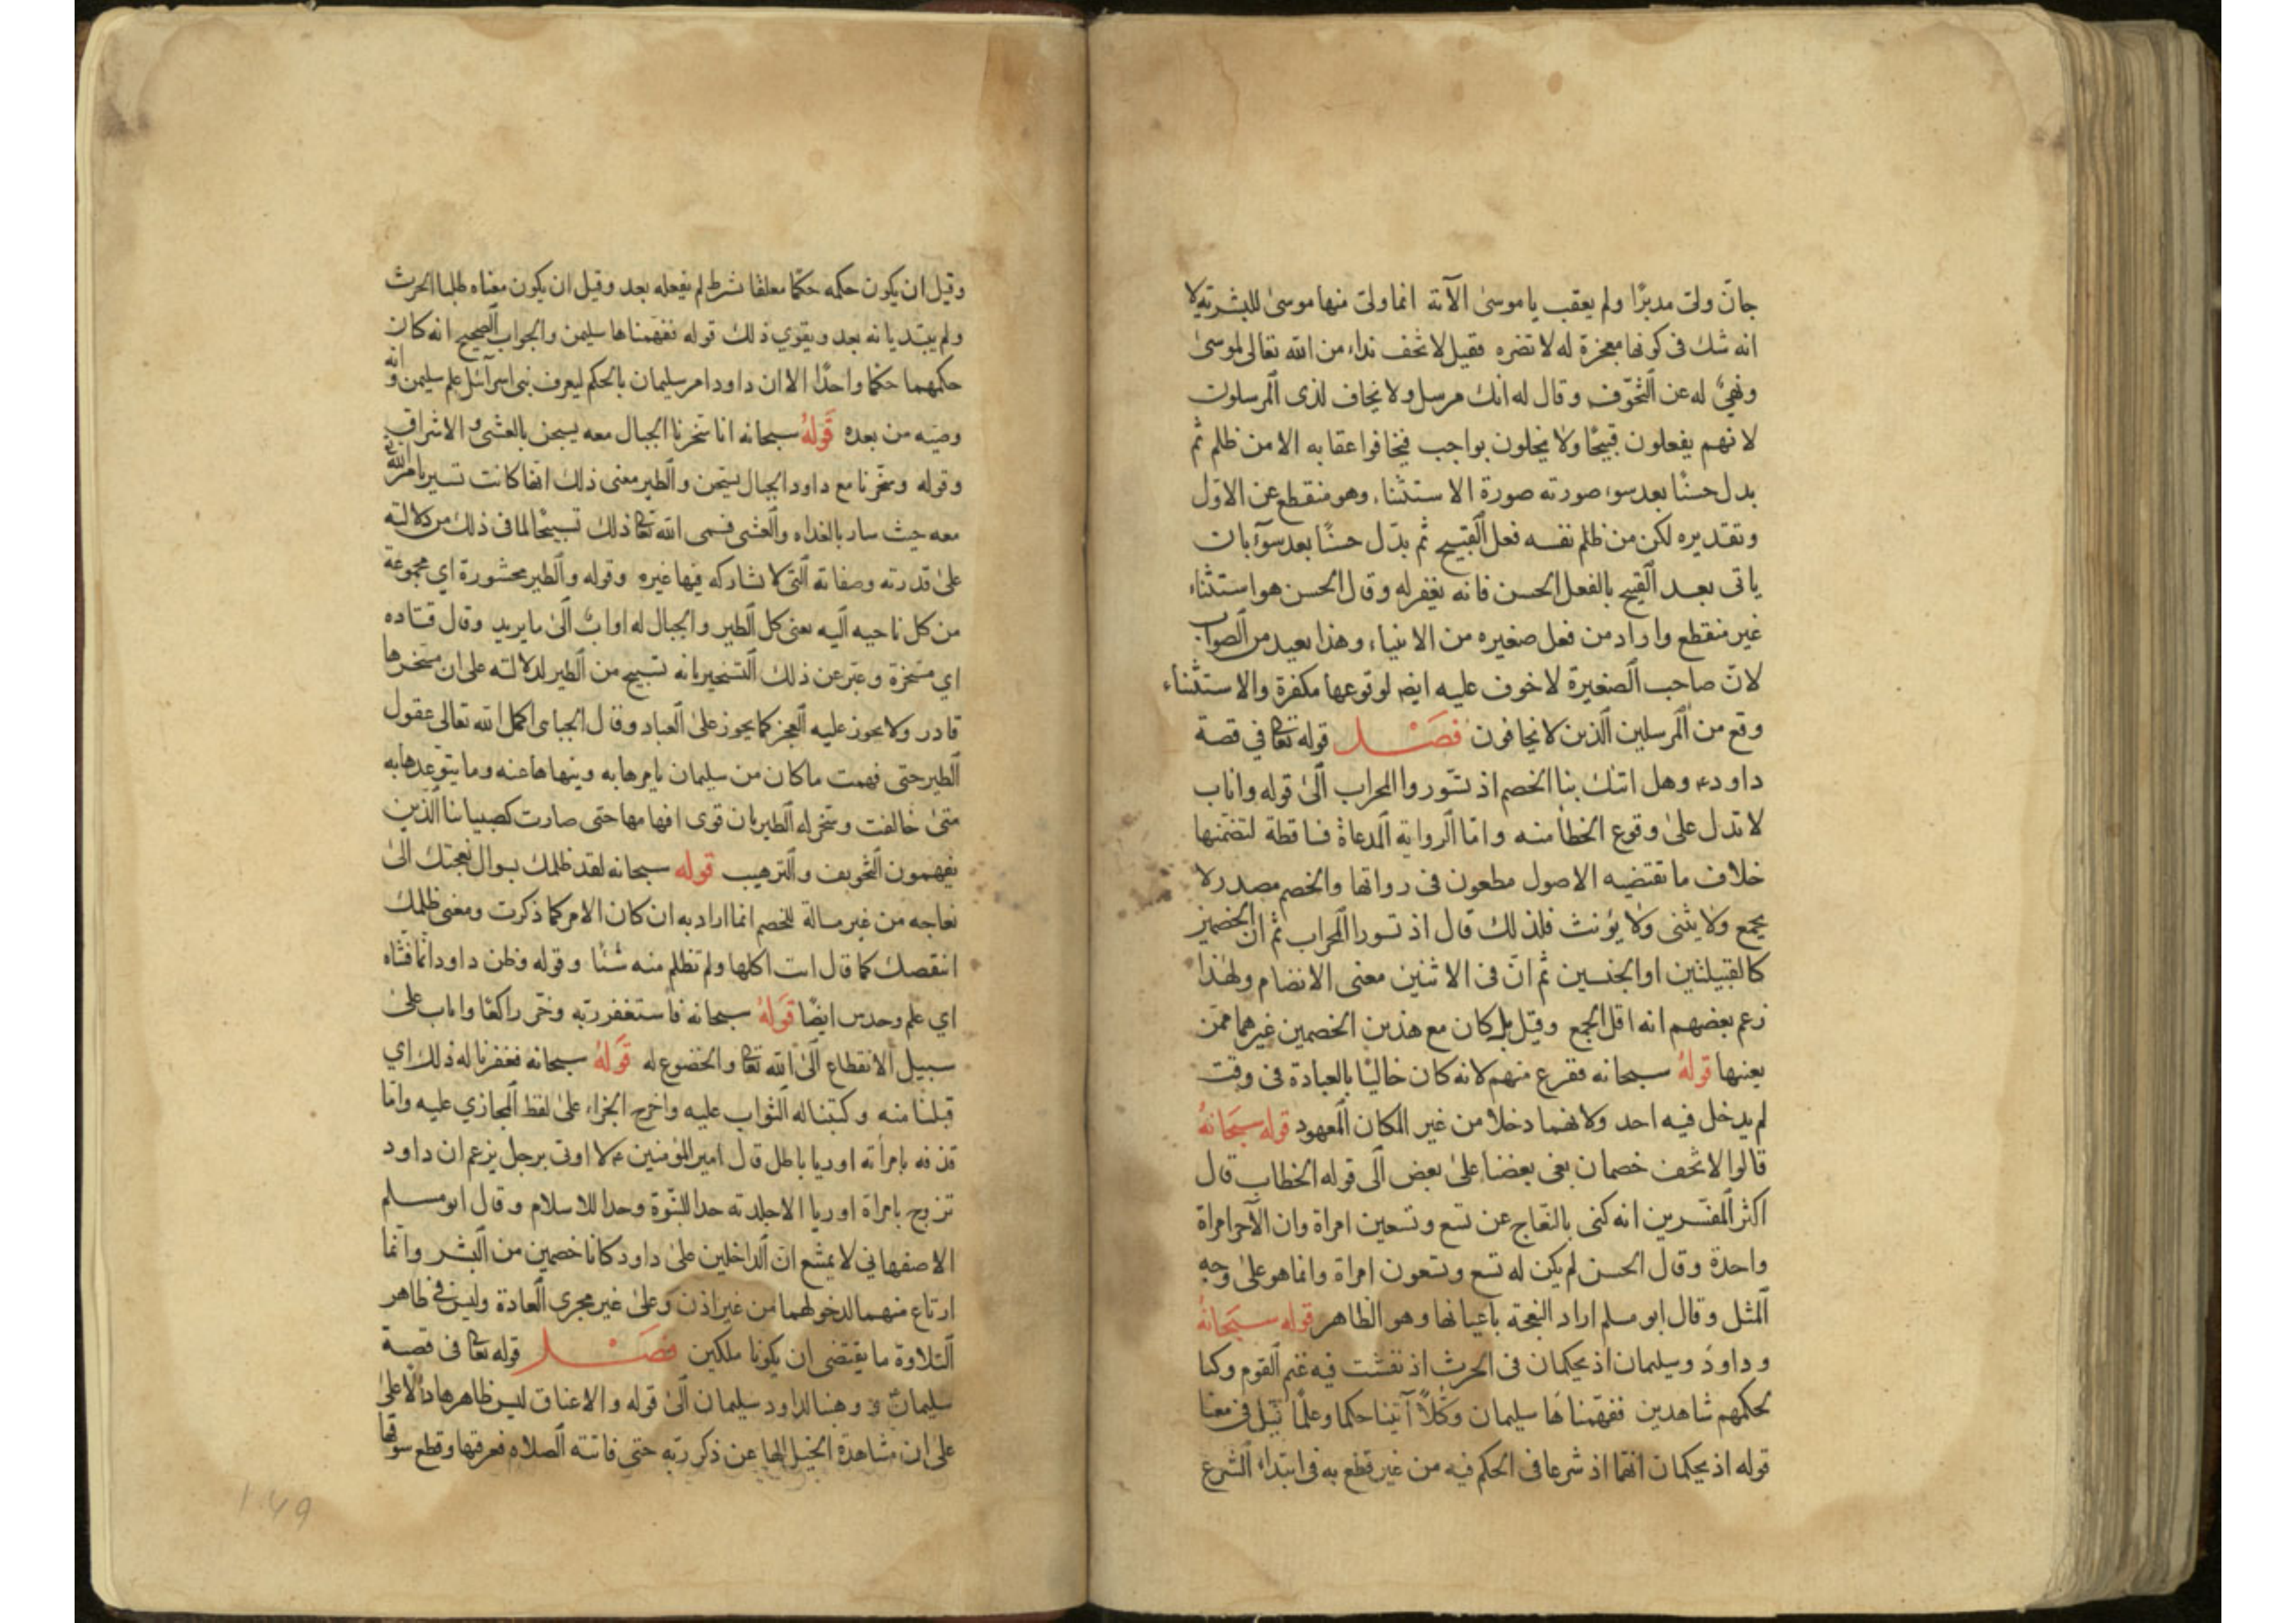 جانّ ولى مدبرًا ولم يعقب يا موسىٰ الآية انما ولى منها موسىٰ للبشرية لا
انه شك فى كونها معجزة له لا تضره فقيل لا تخف نداء من الله تعالى لموسىٰ
ونهىٌ له عن التخوّف وقال له انك مرسل ولا يخاف لذى المرسلون
لانهم يفعلون قبيحًا ولا يخلون بواجب فيخافوا عقابه الا من ظلم ثم
بدل حسنًا بعد سوء صورته صورة الاستثناء وهو منقطع عن الاوّل
وتقديره لكن من ظلم نفسه فعل القبيح ثم بدّل حسنًا بعد سوء بان
ياتى بعد القبيح بالفعل الحسن فانه يغفر له وقال الحسن هو استثناء
غير منقطع واراد من فعل صغيره من الانبياء وهذا بعيد من الصواب
لانّ صاحب الصغيرة لا خوف عليه ايضا لوقوعها مكفرة والاستثناء
وقع من المرسلين الذين لا يخافون فصل قوله تعا في قصة
داود ع وهل اتىك بنا الخصم اذ تسّوروا المحراب الىٰ قوله واناب
لا تدل علىٰ وقوع الخطأ منه وامّا الرواية المدعاة فساقطة لتضمّنها
خلاف ما تقتضيه الاصول مطعون فى رواتها والخصم مصدر لا
يجمع ولا يثنى ولا يؤنث فلذلك قال اذ تسورا المحراب ثم ان الخصمين
كالقبيلتين او الجنسين ثم انّ فى الاثنين معنى الانضمام ولهذا
زعم بعضهم انه اقل الجمع وقيل بل كان مع هذين الخصمين غيرهما ممّن
يعينها قوله سبحانه ففزع منهم لانه كان خاليًا بالعبادة فى وقت
لم يدخل فيه احد ولانهما دخلا من غير المكان المعهود قوله سبحانه
قالوا لا تخف خصمان بغى بعضنا علىٰ بعض الى قوله الخطاب قال
اكثر المفسّرين انه كنى بالنعاج عن تسع وتسعين امراة وان الآخر امراة
واحدة وقال الحسن لم يكن له تسع وتسعون امراة وانما هو علىٰ وجه
المثل وقال ابو مسلم اراد النعجة باعيانها وهو الظاهر قوله سبحانه
وداود وسليمان اذ يحكمان فى الحرث اذ نفشت فيه غنم القوم وكنا
لحكمهم شاهدين ففهّمناها سليمان وكلًّا آتينا حكما وعلمًا قيل فى معنا
قوله اذ يحكمان انهما اذ شرعا فى الحكم فيه من غير قطع به فى ابتداء الشرع
وقيل ان يكون حكمه حكمًا معلقا بشرط لم يفعله بعد وقيل ان يكون معناه طلبا الحرث
ولم يبتديا نه بعد ويقوي ذلك قوله ففهّمناها سليمن والجواب الصحيح انه كان
حكمهما حكمًا واحدًا الا ان داود امر سليمان بالحكم ليعرف بنى اسرآئيل علم سليمن وانه
وصيّه من بعده قوله سبحانه انا سخرنا الجبال معه يسبحن بالعشى والاشراق
وقوله وسخّرنا مع داود الجبال يسبّحن والطير معنى ذلك انها كانت تسير بامر الله
معه حيث سار بالغداه والعشى فسمى الله تعا ذلك تسبيحًا لما فى ذلك من دلالته
علىٰ قدرته وصفاته التى لا شاركه فيها غيره وقوله والطير محشورة اي مجموعة
من كل ناحيه اليه يعنى كل الطير والجبال له اوابٌ الىٰ ما يريد وقال قتاده
اي مسخرة وعبّر عن ذلك التسخير بانه تسبيح من الطير لدلالته على ان مسخرها
قادر ولا يجوز عليه العجز كما يجوز علىٰ العباد وقال الجباى اكمل الله تعالى عقول
الطير حتى فهمت ما كان من سليمان يامرها به وينهاها عنه وما يتوعدها به
متىٰ خالفت وسخر له الطير بان قوى افهامها حتى صارت كصبياننا الذين
يفهمون التخويف والترهيب قوله سبحانه لقد ظلمك بسوال نعجتك الىٰ
نعاجه من غير مسالة للخصم انما اراد به ان كان الامر كما ذكرت ومعنى ظلمك
انتقصك كما قال اتت اكلها ولم تظلم منه شئًا وقوله وظن داود انما فتناه
اي علم وحدس ايضًا قوله سبحانه فاستغفر ربّه وخرّ راكعًا واناب علىٰ
سبيل الانقطاع الىٰ الله تعا والخضوع له قوله سبحانه فغفرنا له ذلك اي
قبلنا منه وكتبنا له الثواب عليه واخرج الجزاء علىٰ لفظ المجازي عليه وامّا
قذفه بامرأته اوريا باطل قال امير المؤمنين ع لا اوتى برجل يزعم ان داود
تزوج بامراة اوريا الا جلدته حدا للنبّوة وحدا للاسلام وقال ابو مسلم
الاصفهاني لا يمتنع انّ الداخلين علىٰ داود كانا خصمين من البشر وانما
ارتاع منهما لدخولهما من غير اذن وعلىٰ غير مجرى العادة وليس في ظاهر
التلاوة ما يقتضى ان يكونا ملكين فصل قوله تعا فى قصة
سليمان ع وهبنا لداود سليمان الىٰ قوله والاعناق ليس ظاهرها دالا علىٰ
علىٰ ان مشاهدة الخيل الها عن ذكر ربّه حتى فاتته الصلاه فعرقبها وقطع سوقها